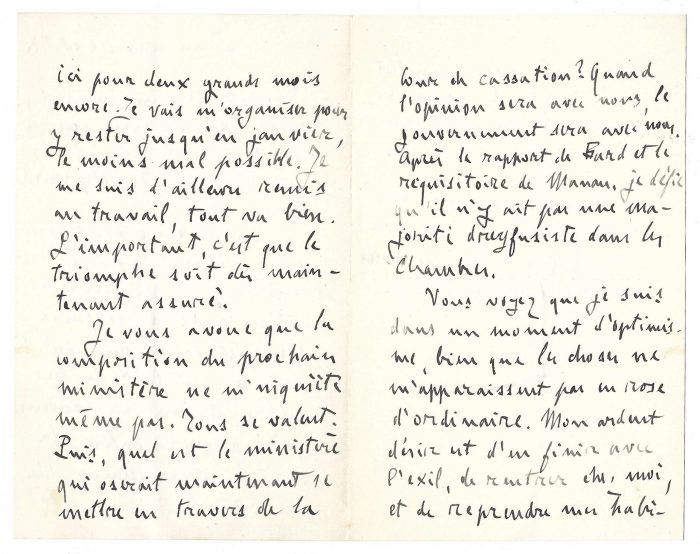 ici pour deux grands mois
encore. Je vais m'organiser pour
y rester jusqu'en janvier,
le moins mal possible. Je
me suis d'ailleurs remis
au travail, tout va bien.
L'important, c'est que le
triomphe soit dès main-
tenant assuré.
Je vous avoue que la
composition du prochain
ministère ne m'inquiète
même pas. Tous se valent.
Puis, quel est le ministère
qui oserait maintenant se
mettre en travers de la
Cour de cassation? Quand
l'opinion sera avec nous, le
gouvernement sera avec nous.
Après le rapport de Bard et le
réquisitoire de Manau, je défie
qu'il n'y ait pas une ma-
jorité dreyfusiste dans les
Chambres.
Vous voyez que je suis
dans un moment d'optimis-
me, bien que les choses ne
m'apparaissent pas en rose
d'ordinaire. Mon ardent
désir est d'en finir avec
l'exil, de rentrer chez moi,
et de reprendre mes habi-